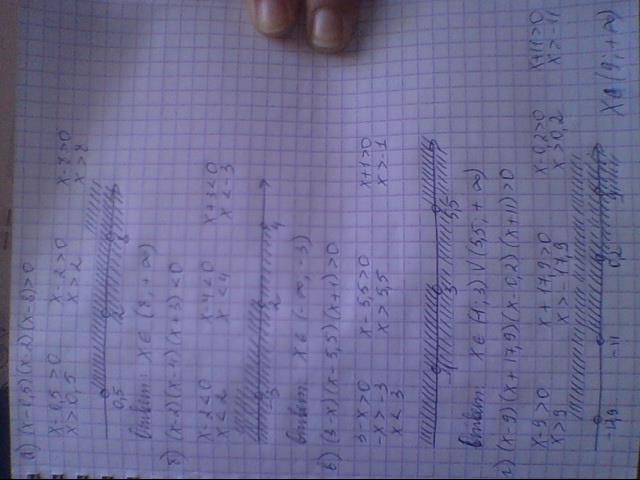 а) (x-0,5)(x-2)(x-8)>0
x-0,5>0 x-2>0 x-8>0
x>0,5 x>2 x>8
0,5 2 8
Ответ: x∈(8,+∞)
б) (x-2)(x-4)(x+3)<0
x-2<0 x-4<0 x+3<0
x<2 x<4 x<-3
-3 2 4
Ответ: x∈(-∞,-3)
в) (3-x)(x-5,5)(x+1)>0
3-x>0 x-5,5>0 x+1>0
-x>-3 x>5,5 x>-1
x<3
3 5,5
Ответ: x∈(-1,3)∨(5,5,+∞)
г) (x-9)(x+17,9)(x-0,2)(x+11)>0
x-9>0 x+17,9>0 x-0,2>0 x+11>0
x>9 x>-17,9 x>0,2 x>-11
-17,9 -11 0,2 9 x∈(9,+∞)